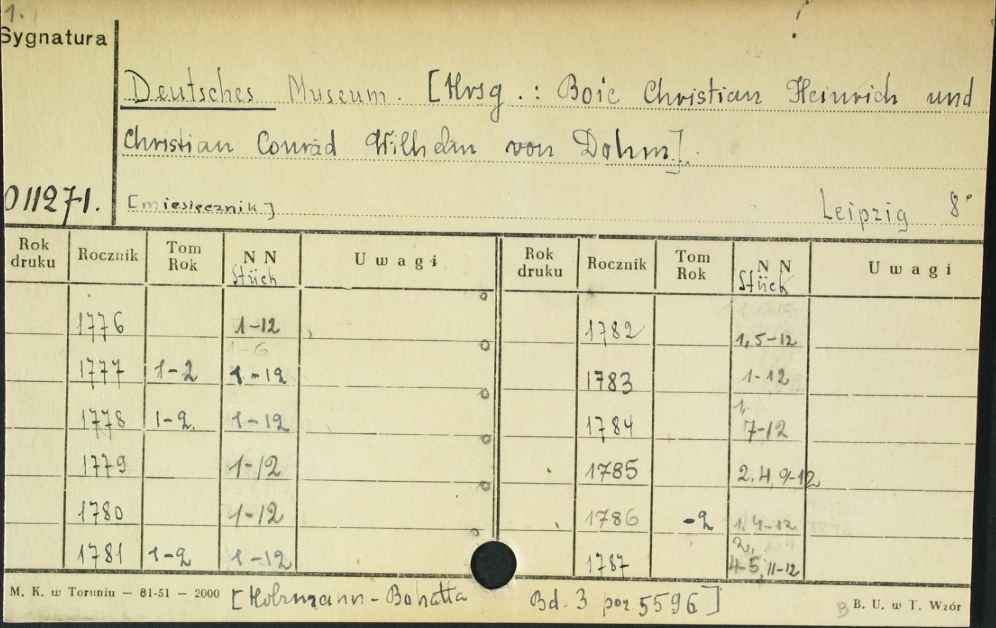 1.
Sygnatura
Deutsches Museum. [Hrsg.: Boie Christian Heinrich und
Christian Conrad Wilhelm von Dohm].
011271. [miesięcznik] Leipzig 8°
Rok druku Rocznik Tom Rok N N Stück Uwagi Rok druku Rocznik Tom Rok N N Stück Uwagi
1776 1-12 1782 1, 5-12
1-6
1777 1-2 1-12 1783 1-12
1778 1-2. 1-12 1784 1, 7-12
1779 1-12 1785 2, 4, 9-12
1780 1-12 1786 -2 1, 4-12
1781 1-2 1-12 1787 2, 4-5, 11-12
M. K. w Toruniu — 81-51 — 2000 [Bohatta Bd. 3 poz 5596] B. U. w T. Wzór